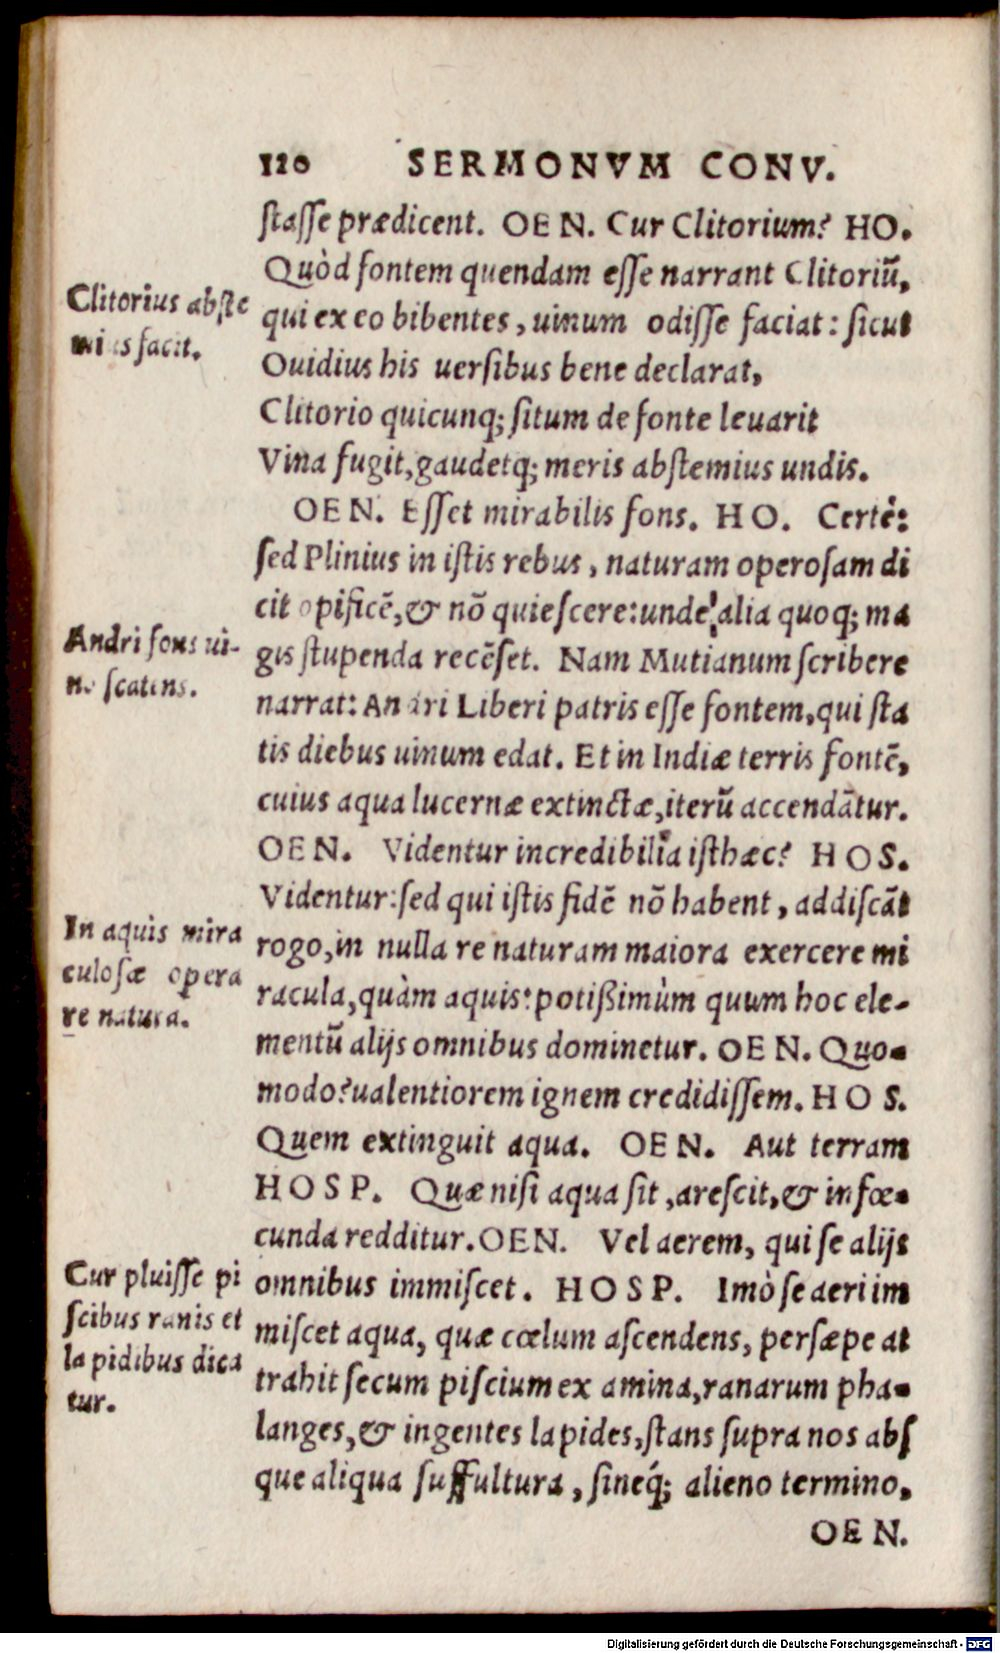 120 SERMONVM CONV.
ſtaſſe prædicent. OEN. Cur Clitorium? HO.
Quòd fontem quendam eſſe narrant Clitoriū,
qui ex eo bibentes, uinum odiſſe faciat: ſicut
Ouidius his uerſibus bene declarat,
Clitorio quicunq; ſitum de fonte leuarit
Vina fugit, gaudetq; meris abſtemius undis.
OEN. Eſſet mirabilis fons. HO. Certè:
ſed Plinius in iſtis rebus, naturam operoſam di
cit opificē, & nō quieſcere: unde alia quoq; ma
gis ſtupenda recēſet. Nam Mutianum ſcribere
narrat: Andri Liberi patris eſſe fontem, qui ſta
tis diebus uinum edat. Et in Indiæ terris fontē,
cuius aqua lucernæ extinctæ, iterū accendātur.
OEN. Videntur incredibilia iſthæc? HOS.
Videntur: ſed qui iſtis fidē nō habent, addiſcāt
rogo, in nulla re naturam maiora exercere mi
racula, quàm aquis: potißimùm quum hoc ele-
mentū alijs omnibus dominetur. OEN. Quo-
modo? ualentiorem ignem credidiſſem. HOS.
Quem extinguit aqua. OEN. Aut terram
HOSP. Quæ niſi aqua ſit, areſcit, & infœ-
cunda redditur. OEN. Vel aerem, qui ſe alijs
omnibus immiſcet. HOSP. Imò ſe aeri im
miſcet aqua, quæ cœlum aſcendens, perſæpe at
trahit ſecum piſcium ex amina, ranarum pha-
langes, & ingentes lapides, ſtans ſupra nos abſ
que aliqua ſuffultura, ſineq́; alieno termino.
OEN.
Clitorius abſte
mius facit.
Andri fons ui-
no ſcatens.
In aquis mira
culoſæ opera
re natura.
Cur pluiſſe pi
ſcibus ranis et
lapidibus dica
tur.
Digitalisierung gefördert durch die Deutsche Forschungsgemeinschaft - DFG